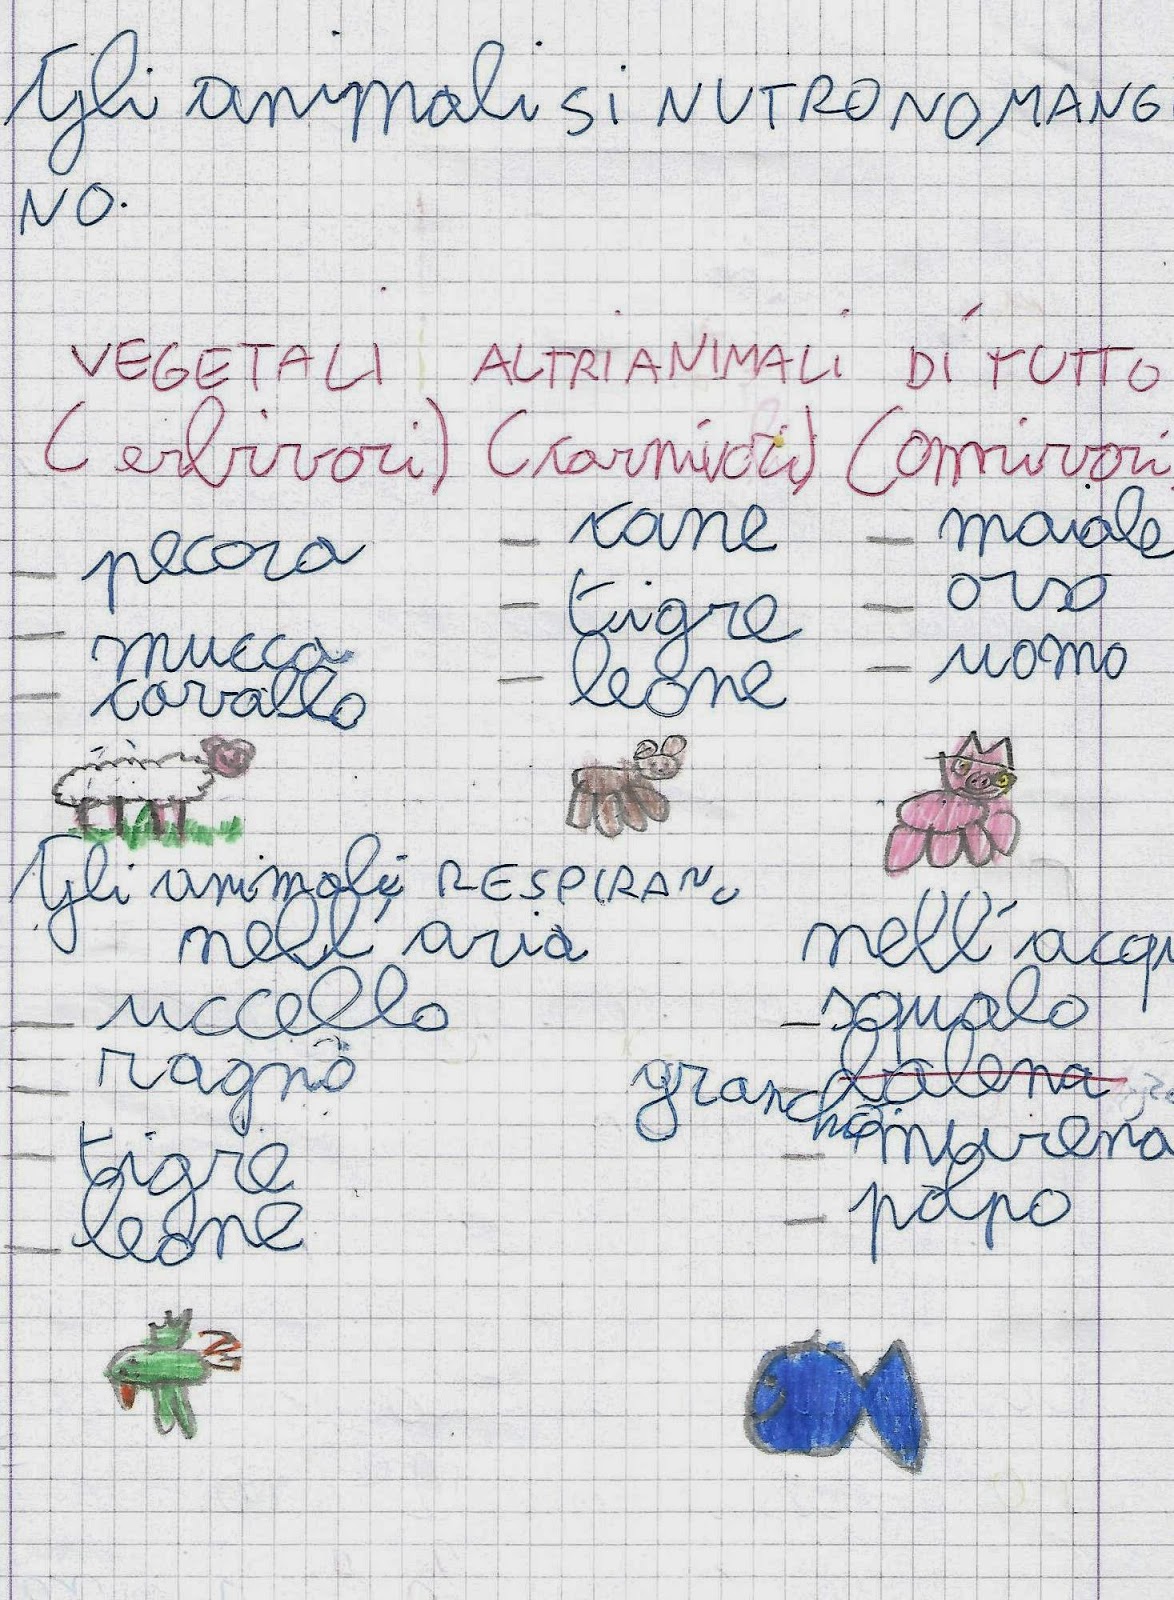 Gli animali si NUTRONO, MANG
NO.
VEGETALI ALTRI ANIMALI DI TUTTO
(erbivori) (carnivori) (onnivori
- pecora - cane - maiale
- mucca - tigre - orso
- cavallo - leone - uomo
Gli animali RESPIRANO
nell'aria nell'acqu
- uccello - squalo
- ragno - balena
granchio
- tigre - murena
- leone - polpo